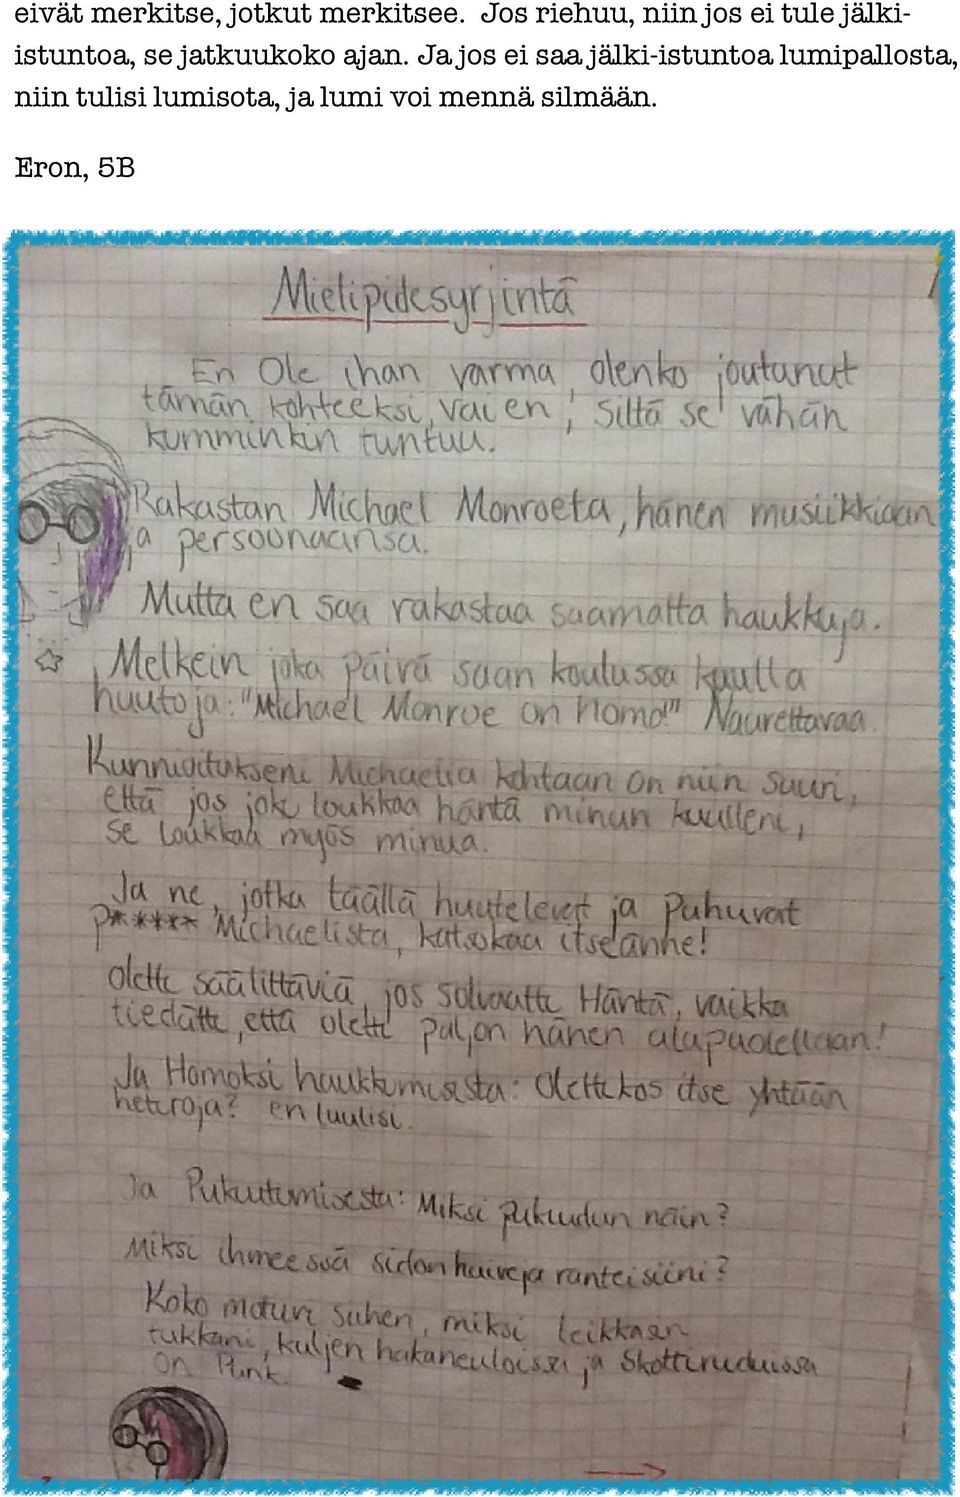 eivät merkitse, jotkut merkitsee. Jos riehuu, niin jos ei tule jälki-
istuntoa, se jatkuukoko ajan. Ja jos ei saa jälki-istuntoa lumipallosta,
niin tulisi lumisota, ja lumi voi mennä silmään.
Eron, 5B
Mielipidesyrjintä
En Ole ihan varma, olenko joutunut
tämän kohteeksi, vai en, Siltä se vähän
kumminkin tuntuu.
Rakastan Michael Monroeta, hänen musiikkiaan
ja persoonaansa.
Mutta en saa rakastaa saamatta haukkuja.
Melkein joka päivä saan koulussa kuulla
huutoja: "Michael Monroe on Homo!" Naurettavaa.
Kunnioitukseni Michaelia kohtaan on niin suuri,
että jos joku loukkaa häntä minun kuulleni,
se loukkaa myös minua.
Ja ne, jotka täällä huutelevat ja Puhuvat
p***** Michaelista, katsokaa itseänne!
olette säälittäviä, jos solvaatte Häntä, vaikka
tiedätte, että olette paljon hänen alapuolellaan!
Ja Homoksi haukkumisesta: Olettekos itse yhtään
heteroja? en luulisi.
Ja Pukeutumisesta: Miksi pukeudun näin?
Miksi ihmeessä sidon huiveja ranteisiini?
Koko motiivi siihen, miksi leikkaan
tukkani, kuljen hakaneuloissa ja Skottiruduissa
on Punk.